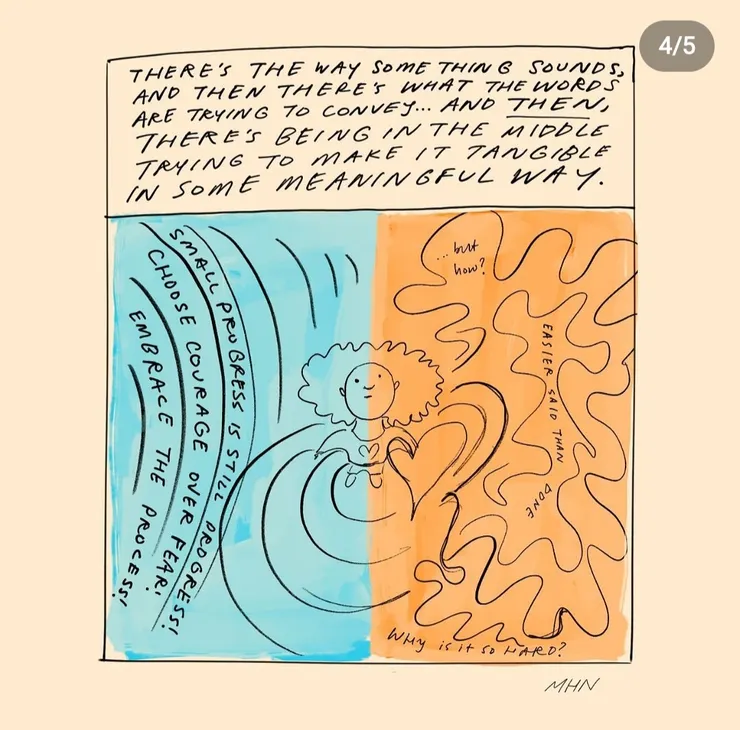 4/5
THERE'S THE WAY SOMETHING SOUNDS,
AND THEN THERE'S WHAT THE WORDS
ARE TRYING TO CONVEY... AND THEN,
THERE'S BEING IN THE MIDDLE
TRYING TO MAKE IT TANGIBLE
IN SOME MEANINGFUL WAY.
SMALL PROGRESS IS STILL PROGRESS!
CHOOSE COURAGE OVER FEAR!
EMBRACE THE PROCESS!
...but
how?
EASIER SAID THAN DONE
WHY is it so HARD?
MHN